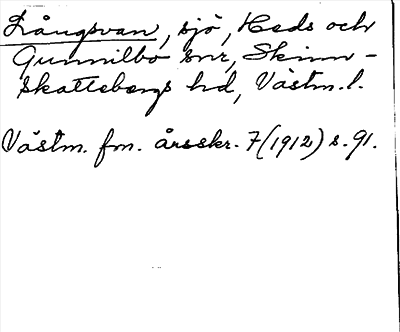 Långsvan, sjö, Heds och
Gunnilbo snr, Skinn-
skattebergs hd, Västm. l.
Västm. fm. årsskr. 7 (1912) s. 91.